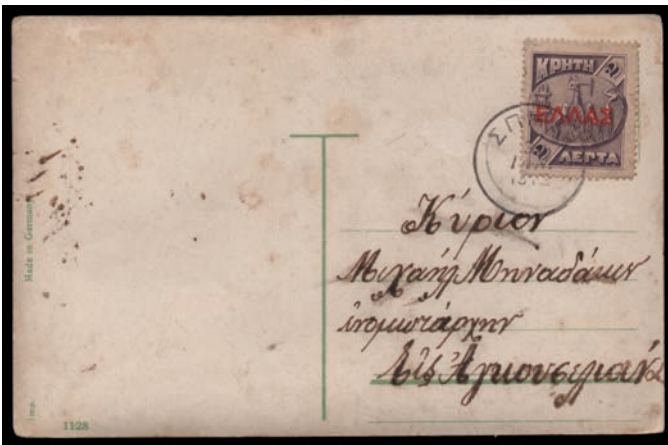 ΚΡΗΤΗ 2
ΕΛΛΑΣ
2 ΛΕΠΤΑ
ΣΠ
Κύριον
Μιχαήλ Μηναδάκην
ἐνωμοτάρχην
Εἰς Ἁγκουσελιανά
Made in Germany
imp.
1128